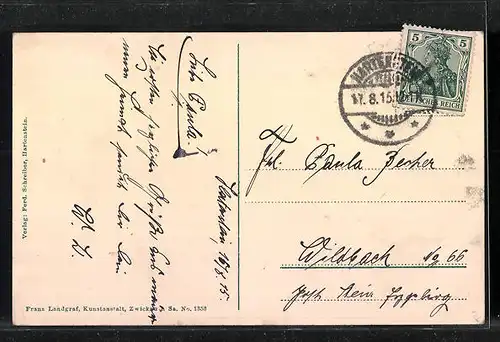 5
DEUTSCHES REICH
HARTENSTEIN
17.8.15
Hartenstein, 16/8. 15.
Liebe Paula!
Die besten herzlichen Grüße aus
meiner Heimat sendet Dir
Frl. Paula Becher
Wildbach No 66
Post Stein Erzgebirg
Verlag: Ferd. Schreiber, Hartenstein.
Franz Landgraf, Kunstanstalt, Zwickau i. Sa. No. 1353